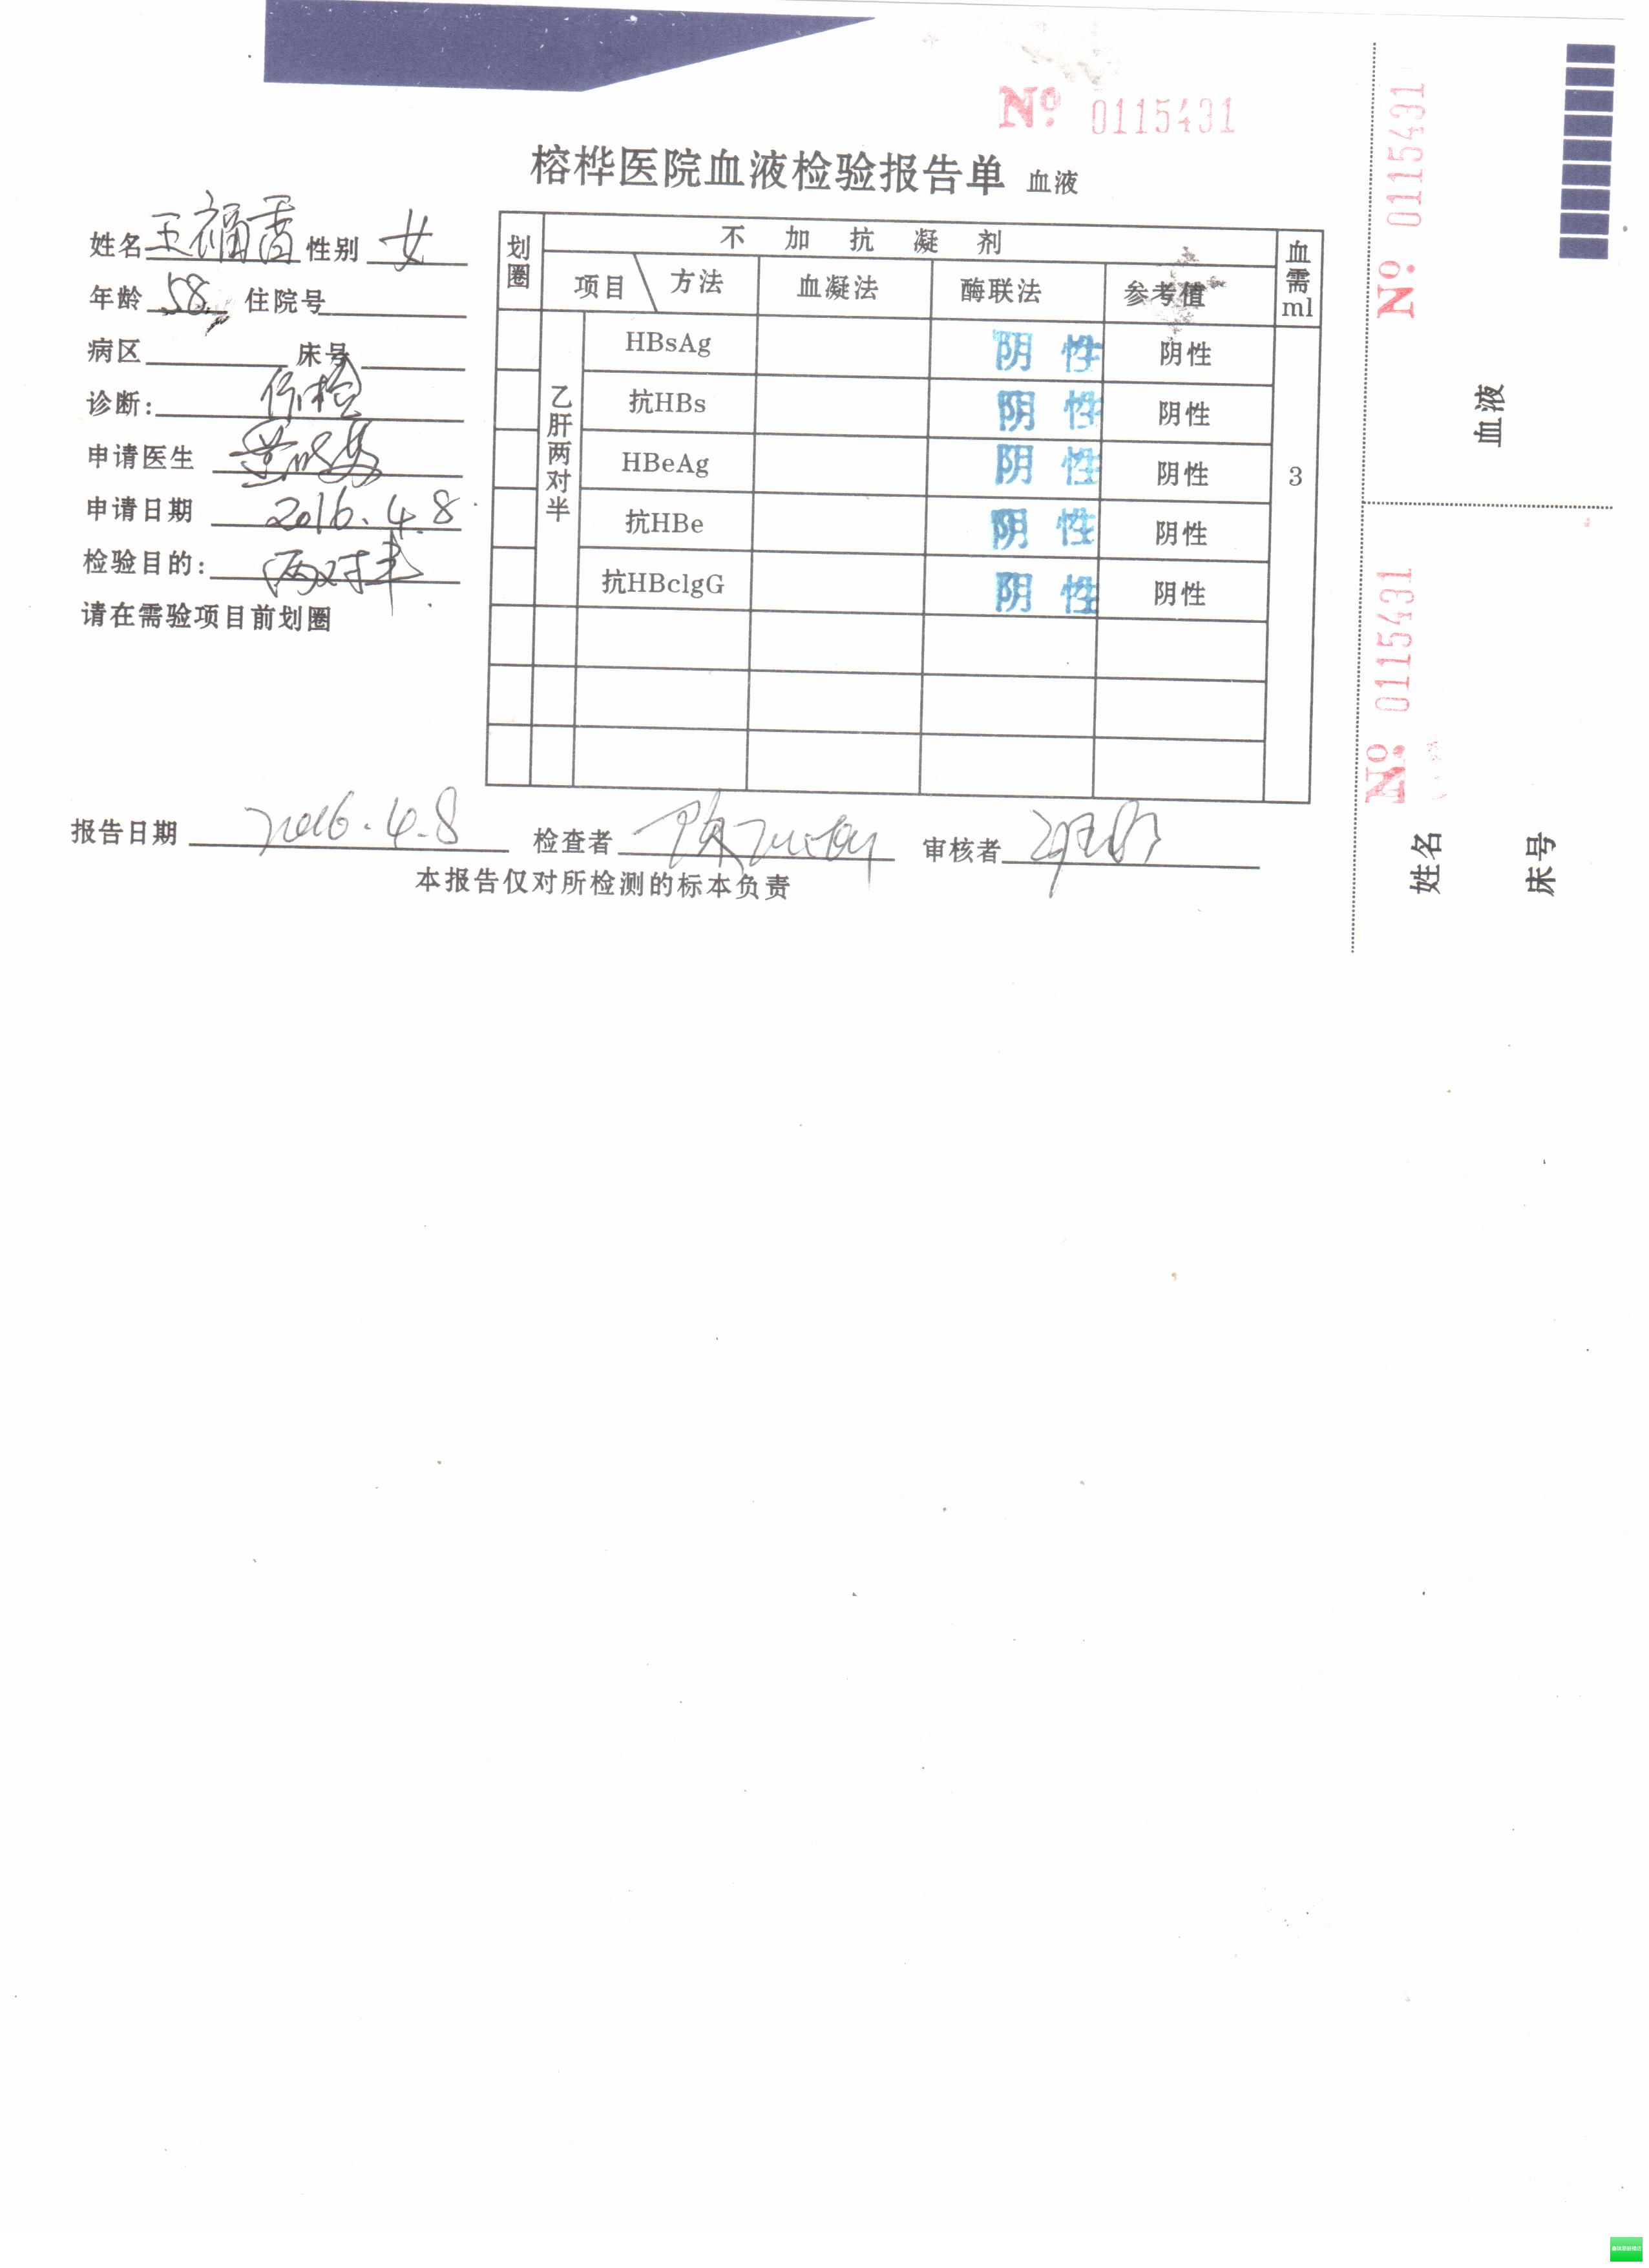 Nº 0115431
榕桦医院血液检验报告单 血液
姓名 王福香 性别 女
年龄 58 住院号
病区 床号
诊断: 体检
申请医生
申请日期 2016.4.8
检验目的: 两对半
请在需验项目前划圈
划圈 不加抗凝剂 血需ml
项目 方法 血凝法 酶联法 参考值
乙肝两对半
HBsAg 阴性 阴性
抗HBs 阴性 阴性
HBeAg 阴性 阴性 3
抗HBe 阴性 阴性
抗HBclgG 阴性 阴性
报告日期 2016.4.8 检查者 审核者
本报告仅对所检测的标本负责
Nº 0115431
血液
Nº 0115431
姓名
床号